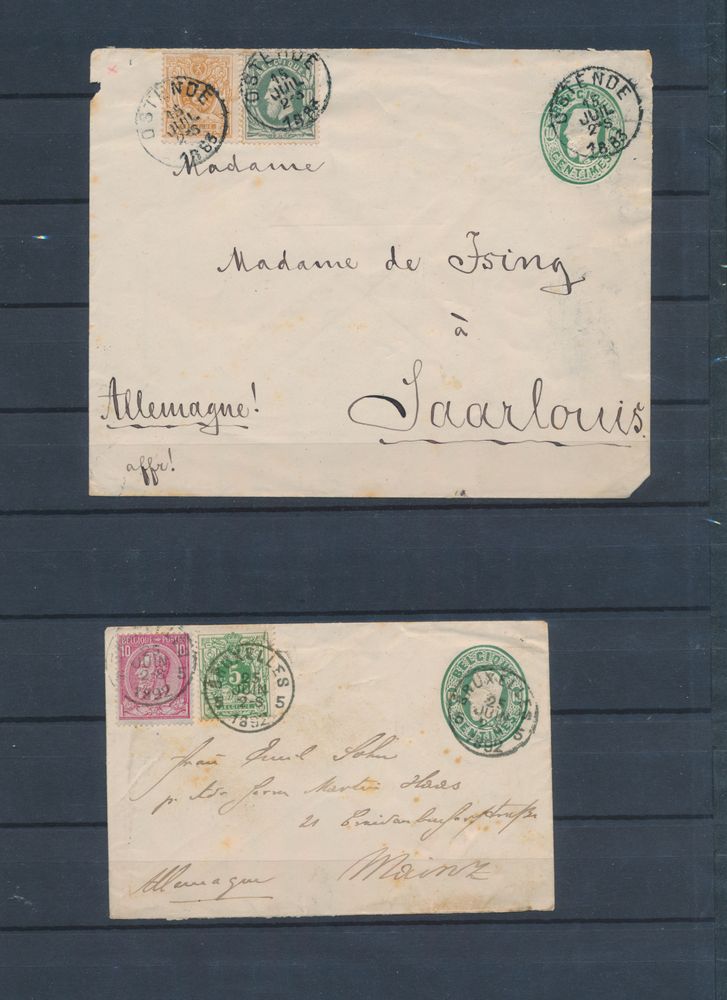 OSTENDE
15
JUIL
2-S
1883
OSTENDE
15
JUIL
2-S
1883
OSTENDE
15
JUIL
2-S
1883
CENTIMES
Madame
Madame de Ising
à
Saarlouis.
Allemagne!
affr!
BELGIQUE POSTES
10 10
JUIN
2-S
1892
5
5
BRUXELLES
25
JUIN
2-S
1892
5
BELGIQUE
BRUXELLES
CENTIMES
1892
Frau Emil Sohn
p. Adr Herrn Martin Haas
21
Mainz
Allemagne